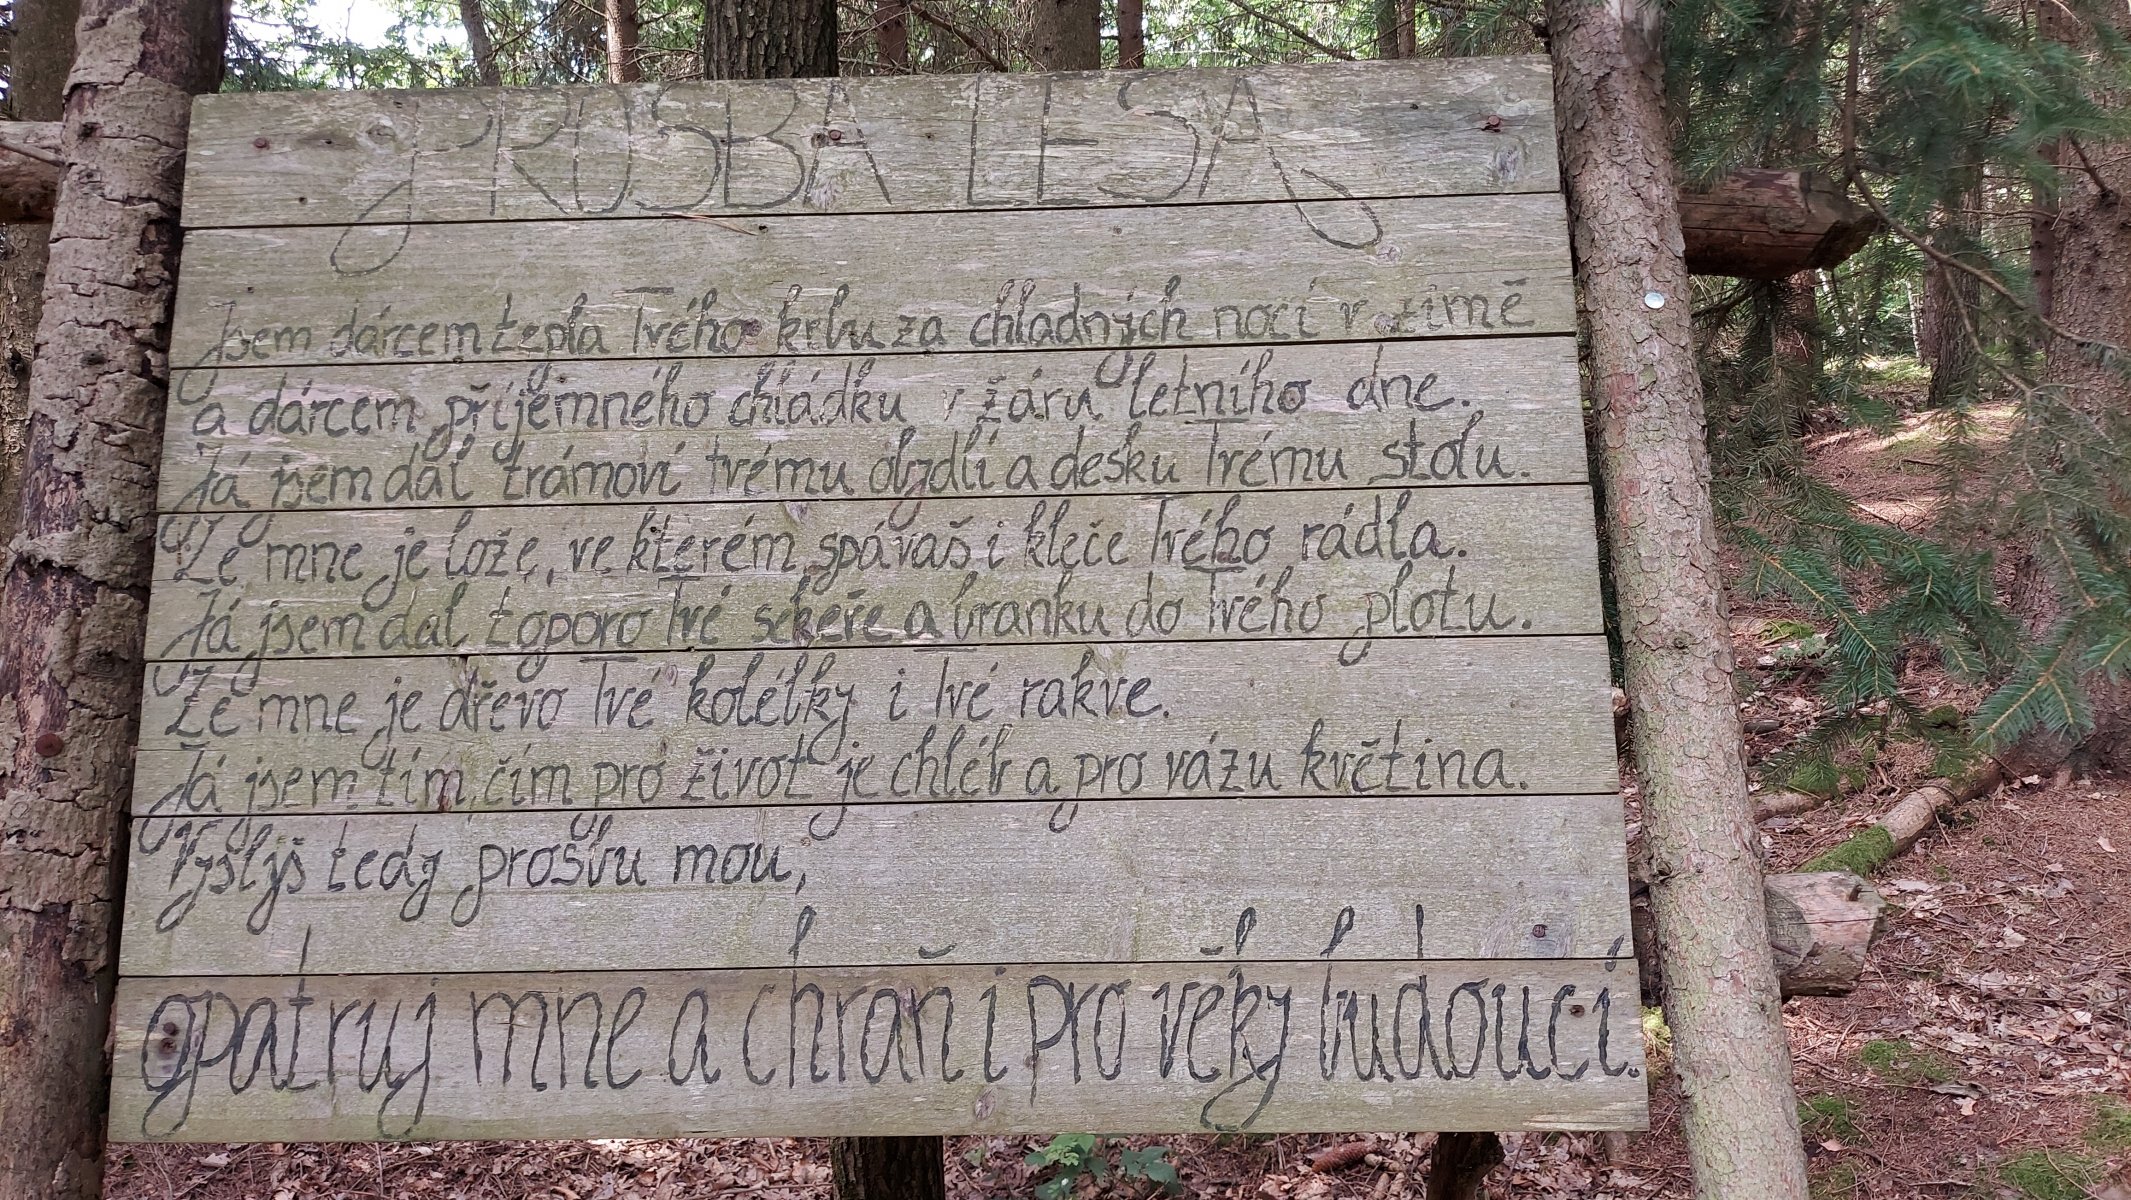 PROSBA LESA
Jsem dárcem tepla Tvého krbu za chladných nocí v zimě
a dárcem příjemného chládku v žáru letního dne.
Já jsem dal trámoví tvému obydlí a desku Tvému stolu.
Ze mne je lože, ve kterém spáváš i kleče Tvého rádla.
Já jsem dal toporo Tvé sekeře a branku do Tvého plotu.
Ze mne je dřevo Tvé kolébky i Tvé rakve.
Já jsem tím, čím pro život je chléb a pro vázu květina.
Vyslyš tedy prosbu mou,
opatruj mne a chraň i pro věky budoucí.